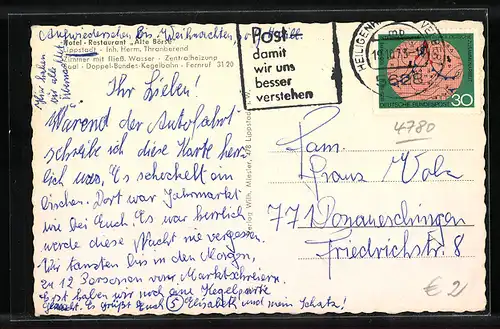 Aufwiedersehen bis Weihnachten,
Hotel - Restaurant „Alte Börse"
Lippstadt · Inh. Herm. Thranberend
Zimmer mit fließ. Wasser · Zentralheizung
Saal · Doppel-Bundes-Kegelbahn · Fernruf 31 20
Ihr Lieben!
Wärend der Autofahrt
schreibe ich diese Karte herz
lich aus. Es schockelt ein
bischen. Dort war Jahrmarkt
wie bei Euch. Es war herrlich
werde diese Nacht nie vergessen.
Wir tanzten bis in den Morgen,
zu 12 Personen vom Marktschreiern.
Erst haben wir noch eine Kegelparte
gemacht. Es grüßt Euch Elisabeth und mein Schatz!
Verlag Wilh. Miesler, 478 Lippstadt i. W.
Post
damit
wir uns
besser
verstehen
HEILIGENH
5628
DEUTSCHE BUNDESPOST
30
4780
Fam.
Franz Volz
771 Donaueschingen
Friedrichstr. 8
€ 2